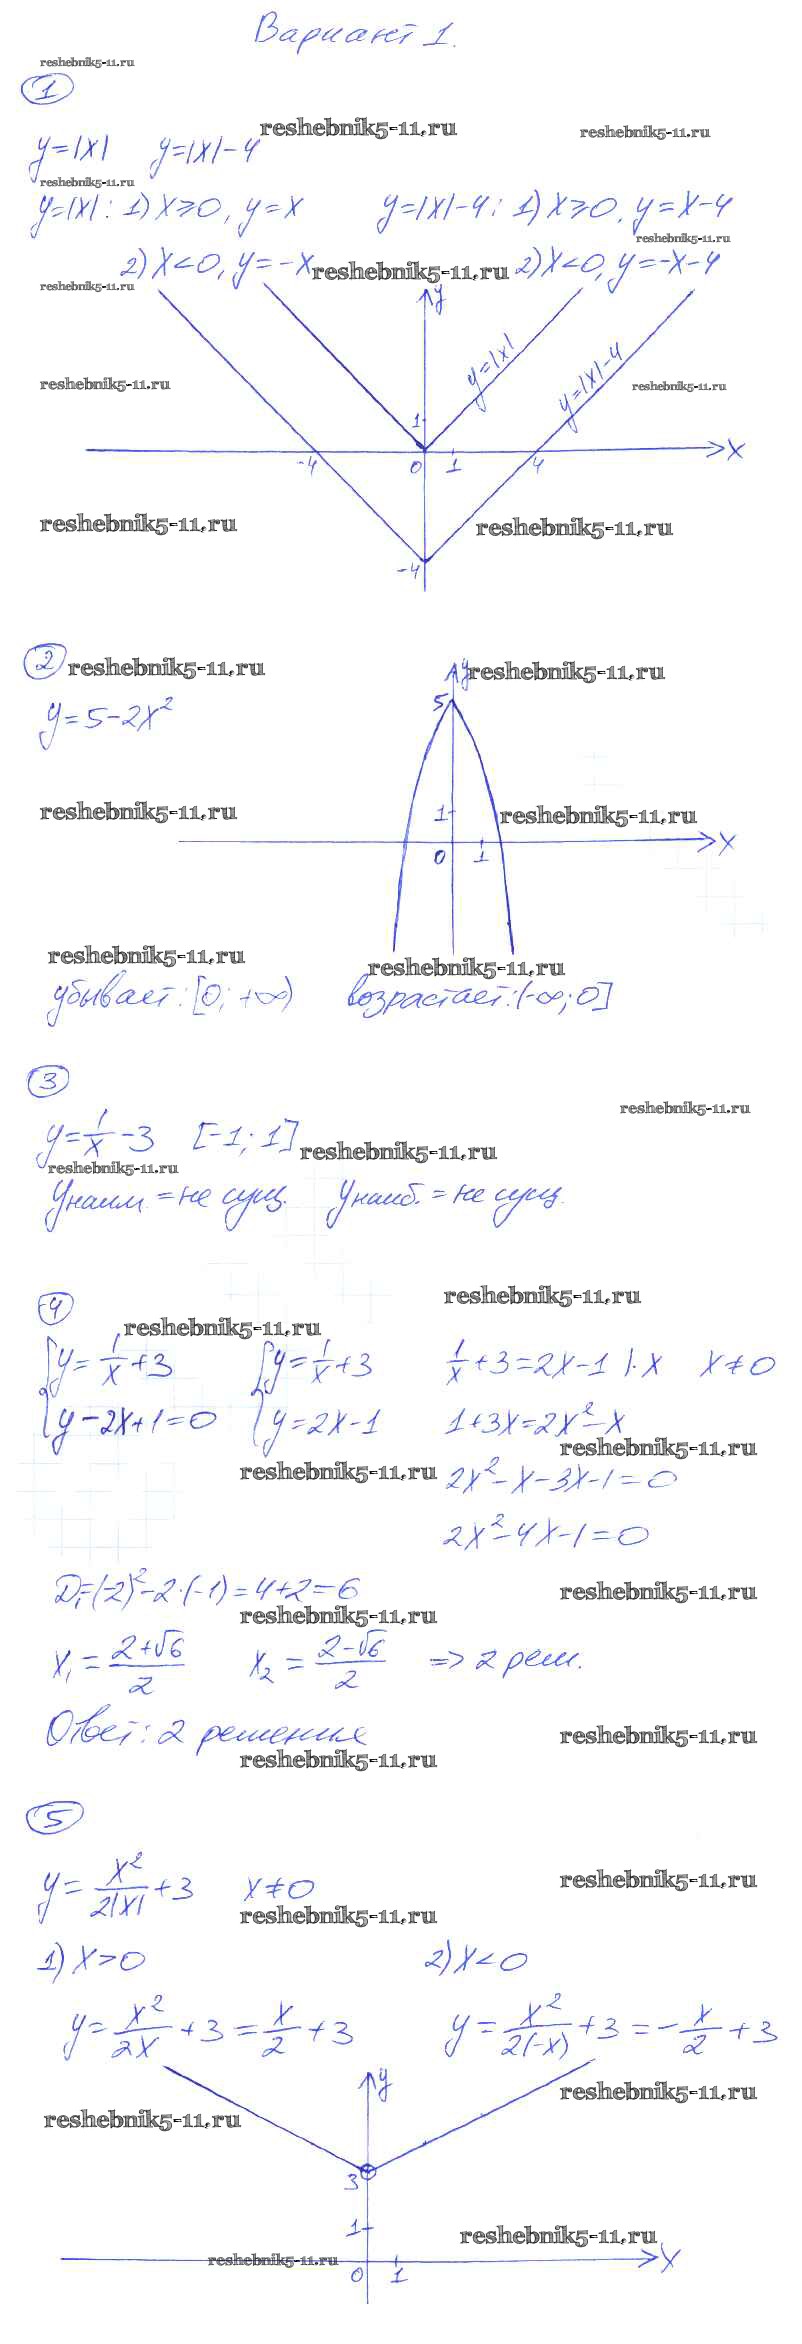 Вариант 1.
reshebnik5-11.ru
1
reshebnik5-11.ru
reshebnik5-11.ru
y=|x| y=|x|-4
reshebnik5-11.ru
y=|x|: 1) x≥0, y=x y=|x|-4: 1) x≥0, y=x-4
reshebnik5-11.ru
2) x<0, y=-x reshebnik5-11.ru 2) x<0, y=-x-4
reshebnik5-11.ru
y
y=|x|
y=|x|-4
reshebnik5-11.ru
reshebnik5-11.ru
1
-4 0 1 4 x
reshebnik5-11.ru
reshebnik5-11.ru
-4
2 reshebnik5-11.ru
y reshebnik5-11.ru
y=5-2x²
5
reshebnik5-11.ru
1 reshebnik5-11.ru
0 1 x
reshebnik5-11.ru
reshebnik5-11.ru
убывает: [0; +∞) возрастает: (-∞; 0]
3
reshebnik5-11.ru
y=1/x-3 [-1; 1] reshebnik5-11.ru
reshebnik5-11.ru
yнаим. = не сущ. yнаиб. = не сущ.
4
reshebnik5-11.ru
reshebnik5-11.ru
{y=1/x+3 {y=1/x+3 1/x+3=2x-1 |·x x≠0
y-2x+1=0 y=2x-1 1+3x=2x²-x
reshebnik5-11.ru
reshebnik5-11.ru
2x²-x-3x-1=0
2x²-4x-1=0
D₁=(-2)²-2·(-1)=4+2=6
reshebnik5-11.ru
reshebnik5-11.ru
x₁=(2+√6)/2 x₂=(2-√6)/2 => 2 реш.
Ответ: 2 решения
reshebnik5-11.ru
reshebnik5-11.ru
5
y=x²/2|x|+3 x≠0
reshebnik5-11.ru
reshebnik5-11.ru
1) x>0 2) x<0
y=x²/2x+3=x/2+3 y=x²/2(-x)+3=-x/2+3
y
reshebnik5-11.ru
reshebnik5-11.ru
3
1
reshebnik5-11.ru
reshebnik5-11.ru
0 1 x